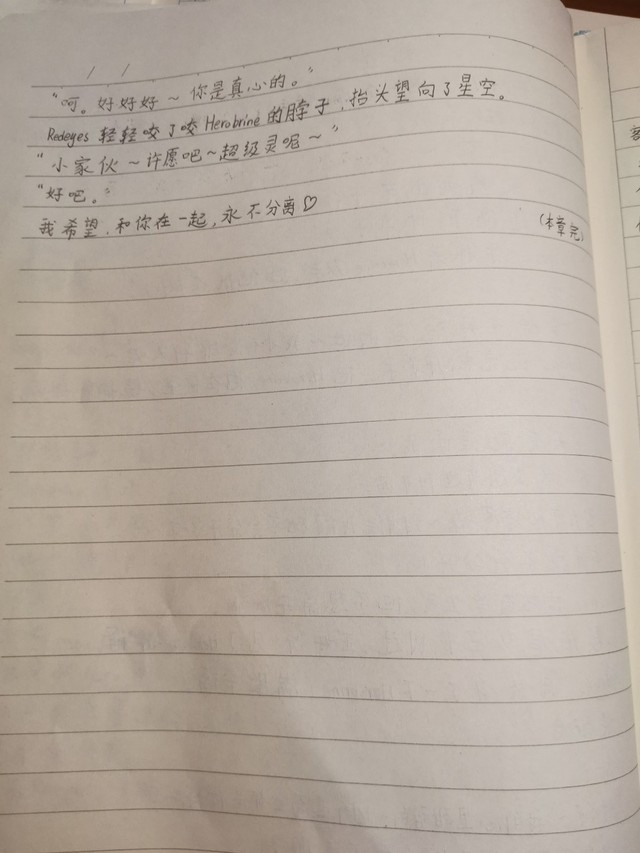 “呵。好好好～你是真心的。”
Redeyes 轻轻咬了咬 Herobrine 的脖子，抬头望向了星空。
“小家伙～许愿吧～超级灵呢～”
“好吧。”
我希望，和你在一起，永不分离♡
（本章完）